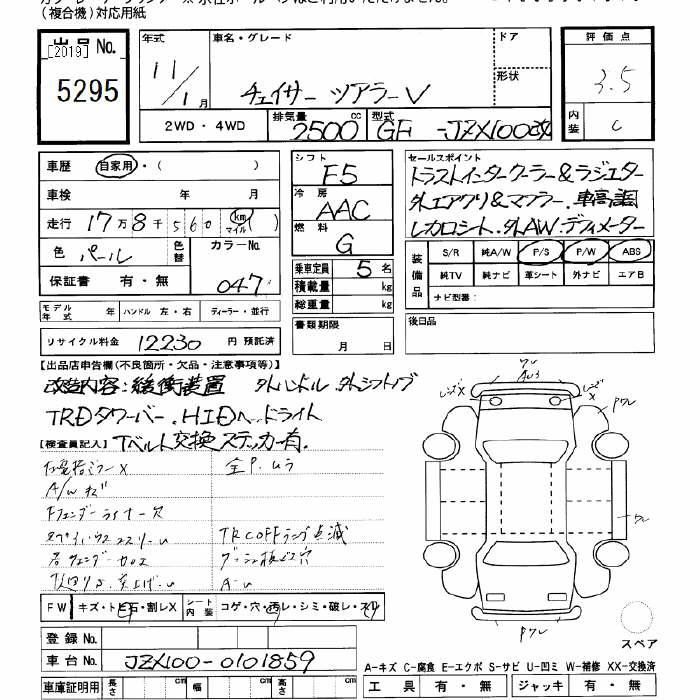 (複合機)対応用紙
出品 No.
[2019]
5295
年式
11/1月
車名・グレード
チェイサー ツアラーV
ドア
形状
2WD・4WD
排気量
2500 cc
型式
GF -JZX100改
評価点
3.5
内装
C
車歴 自家用・( )
車検 年 月
走行 17万8千560 (km マイル)
色 パール
色替
カラーNo.
047
保証書 有・無
モデル年式 年 ハンドル 左・右 ディーラー・並行
リサイクル料金 12230 円 預託済
シフト
F5
冷房
AAC
燃料
G
乗車定員 5 名
積載量 kg
総重量 kg
書類期限
月 日
セールスポイント
トラストインタークーラー&ラジエター
外エアクリ&マフラー.車高調
レカロシート.外AW.デフィメーター
装備品
S/R 純A/W P/S P/W ABS
純TV 純ナビ 革シート 外ナビ エアB
ナビ型番:
後日品
【出品店申告欄(不良箇所・欠品・注意事項等)】
改造内容:緩衝装置 外ハンドル 外シフトノブ
TRDタワーバー.HIDヘッドライト
Tベルト交換ステッカー有.
【検査員記入】
全P.ムラ
A/Wキズ
Fフェンダーライナー欠
TRC OFFランプ点滅
A-U
FW キズ・トビ石・割レX
シート内装 コゲ・穴・汚レ・シミ・破レ・スレ
登録 No.
車台 No. JZX100-0101859
車庫証明用 長さ cm 幅 cm 高さ cm
スペア
A-キズ C-腐食 E-エクボ S-サビ U-凹ミ W-補修 XX-交換済
工具 有・無 ジャッキ 有・無